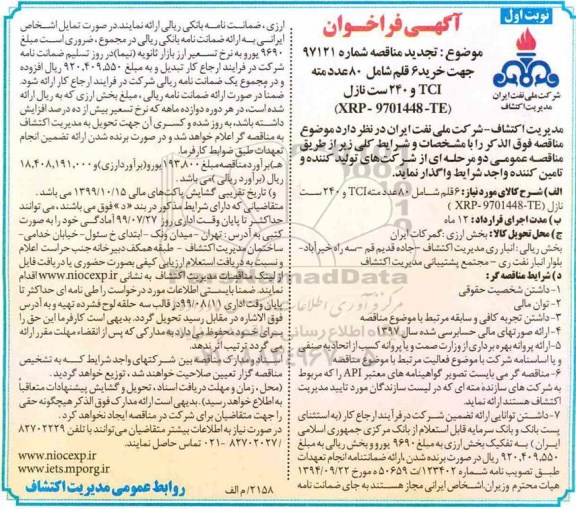 نوبت اول
آگهـی فراخـوان
موضوع : تجدید مناقصه شماره ۹۷۱۲۱
جهت خرید ۶ قلم شامل ۸۰ عدد مته
TCI و ۲۴۰ ست نازل
(XRP- 9701448-TE)
شرکت ملی نفت ایران
مدیریت اکتشاف
مدیریت اکتشاف- شرکت ملی نفت ایران در نظر دارد موضوع
مناقصه فوق الذکر را با مشخصات و شرایط کلی زیر از طریق
مناقصه عمومی دو مرحله ای از شرکت های تولید کننده و
تامین کننده واجد شرایط واگذار نماید.
الف) شرح کالای مورد نیاز: ۶ قلم شامل ۸۰ عدد مته TCI و ۲۴۰ ست
نازل (XRP- 9701448-TE)
ب) مدت اجرای قرارداد: ۱۲ ماه
ج) محل تحویل کالا: بخش ارزی : گمرکات ایران
بخش ریالی : انبار ری مدیریت اکتشاف - جاده قدیم قم - سه راه خیرآباد-
بلوار انبار نفت ری - مجتمع پشتیبانی مدیریت اکتشاف
د) شرایط مناقصه گر :
۱- داشتن شخصیت حقوقی
۲- توان مالی
۳- داشتن تجربه کافی و سابقه مرتبط با موضوع مناقصه
۴- ارائه صورتهای مالی حسابرسی شده سال ۱۳۹۷
۵- ارائه پروانه بهره برداری از وزارت صمت و یا پروانه کسب از اتحادیه صنفی
و یا اساسنامه شرکت با موضوع فعالیت مرتبط با موضوع مناقصه
۶- مناقصه گر می بایست تصویر گواهینامه های معتبر API را که مربوط
به شرکت های سازنده مته ای که در لیست سازندگان مورد تایید مدیریت
اکتشاف هستند ارائه نمایند
۷- داشتن توانایی ارائه تضمین شرکت در فرآیند ارجاع کار (به استثنای
پست بانک و بانک سرمایه قابل استعلام از بانک مرکزی جمهوری اسلامی
ایران) به تفکیک بخش ارزی به مبلغ ۹۶۹۰ یورو و بخش ریالی به مبلغ
۹۲۰,۴۰۹,۵۵۰ ریال در صورت برنده شدن ، ارائه ضمانتنامه انجام تعهدات
طبق تصویب نامه شماره ۱۲۳۴۰۲/ت ۵۰۶۵۹ ه مورخ ۱۳۹۴/۰۹/۲۲
هیات محترم وزیران اشخاص ایرانی مجاز هستند به جای ضمانت نامه
ارزی ، ضمانت نامه بانکی ریالی ارائه نمایند. در صورت تمایل اشخاص
ایرانی به ارائه ضمانت نامه بانکی ریالی در مجموع ، ضروری است مبلغ
۹۶۹۰ یورو به نرخ تسعیر ارز بازار ثانویه (نیما) در روز تسلیم ضمانت نامه
شرکت در فرایند ارجاع کار تبدیل و به مبلغ ۹۲۰,۴۰۹,۵۵۰ ریال افزوده
و در مجموع یک ضمانت نامه ریالی شرکت در فرایند ارجاع کار ارائه شود.
ضمنا در صورت ارائه ضمانت نامه ریالی ، مبلغ بخش ارزی که به ریال ارائه
شده است، در هر دوره دوازده ماهه که نرخ تسعیر بیش از ده درصد افزایش
داشته باشد، به روز شده و کسری آن جهت تحویل به مدیریت اکتشاف
به مناقصه گر اعلام خواهد شد و در صورت برنده شدن ارائه تضمین انجام
تعهدات طبق ضوابط کارفرما
هـ) برآورد مناقصه مبلغ ۱۹۳۸۰۰ یورو (برآورد ارزی) و ۱۸,۴۰۸,۱۹۱,۰۰۰
ریال (برآورد ریالی) می باشد.
و) تاریخ تقریبی گشایش پاکت های مالی ۱۳۹۹/۱۰/۱۵ می باشد.
متقاضیانی که دارای شرایط مذکور در بند «د» فوق می باشند، می توانند
حداکثر تا پایان وقت اداری روز ۹۹/۰۷/۲۷ آمادگی خود را به صورت
کتبی به آدرس : تهران - میدان ونک - ابتدای خ سئول - خیابان خدامی-
ساختمان مدیریت اکتشاف - طبقه همکف دبیرخانه جنب حراست اعلام
و نسبت به دریافت استعلام ارزیابی کیفی بصورت حضوری یا دریافت فایل
از لینک مناقصات مدیریت اکتشاف به نشانی www.niocexp.ir اقدام
نمایند. ضمنا بایستی اطلاعات مورد درخواست را طی نامه ای حداکثر تا
پایان وقت اداری ۹۹/۰۸/۱۱ در قالب سه حلقه لوح فشرده تهیه و به آدرس
فوق الاشاره در مقابل رسید تحویل گردد. بدیهی است کارفرما این حق را
برای خود محفوظ می دارد به مدارکی که پس از انقضاء مهلت مقرر ارائه
می گردد ترتیب اثر ندهد.
اسناد و مدارک مناقصه بین شرکتهای واجد شرایط که به تشخیص
مناقصه گزار تعیین صلاحیت خواهند شد، توزیع خواهد گردید.
(محل ، زمان و مهلت دریافت اسناد ، تحویل و گشایش پیشنهادات متعاقباً
به اطلاع خواهد رسید). بدیهی است ارائه مدارک فوق الذکر هیچگونه حقی
را جهت متقاضیان برای شرکت در مناقصه ایجاد نخواهد کرد.
در صورت نیاز به اطلاعات بیشتر متقاضیان می توانند با تلفن ۸۲۷۰۲۲۲۹
/۸۲۷۰۲۰۲۷ -۰۲۱ تماس حاصل نمایند.
www.niocexp.ir
www.iets.mporg.ir
۲۱۵۸/ م الف
روابط عمومی مدیریت اکتشاف